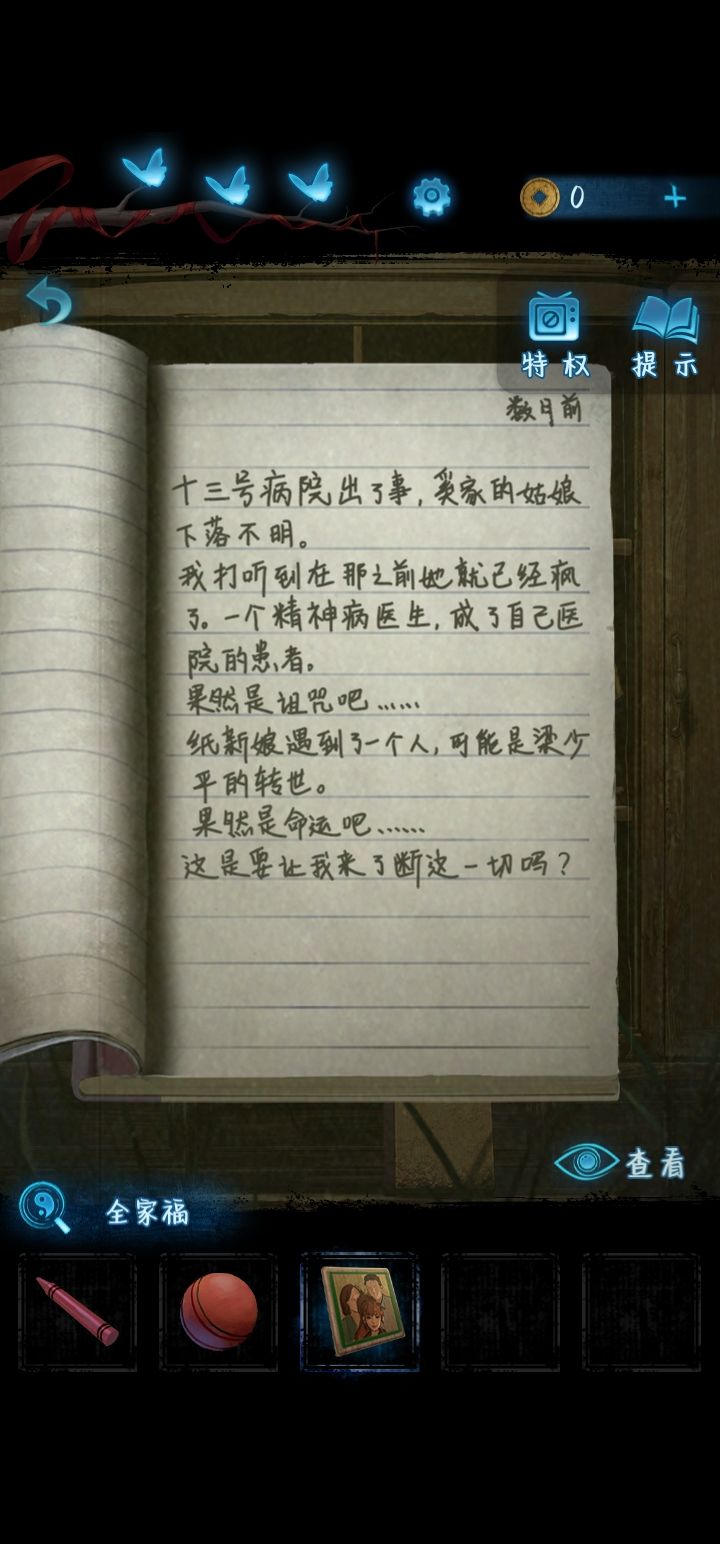 0
特权
提示
数月前
十三号病院出了事，奚家的姑娘
下落不明。
我打听到在那之前她就已经疯
了。一个精神病医生，成了自己医
院的患者。
果然是诅咒吧……
纸新娘遇到了一个人，可能是梁少
平的转世。
果然是命运吧……
这是要让我来了断这一切吗？
查看
全家福